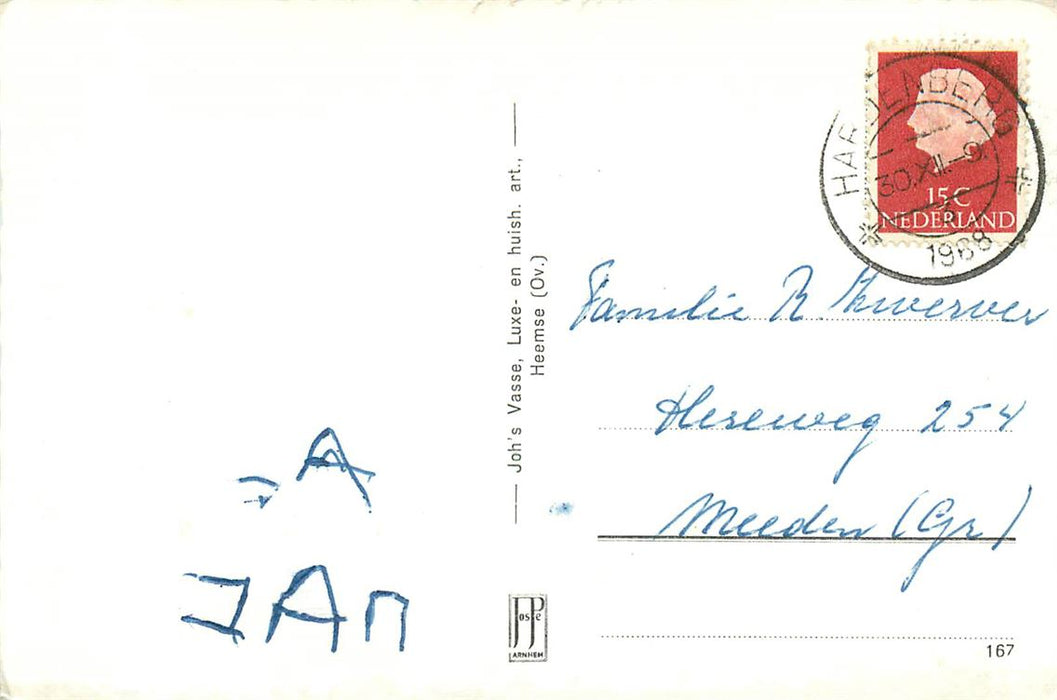 HARDENBERG
30.XII.-9.
1968
15 C
NEDERLAND
Joh's Vasse, Luxe- en huish. art.,
Heemse (Ov.)
Familie R.
Hereweg 254
Meeden (Gr)
A
JAn
JosPe
ARNHEM
167